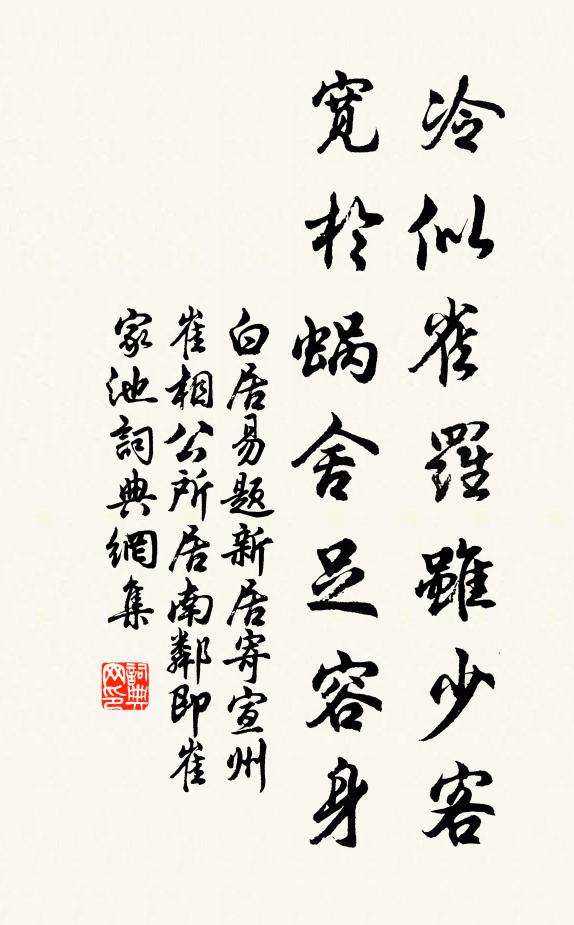 冷似雀羅雖少客
寬於蝸舍足容身
白居易題新居寄宣州
崔相公所居南鄰即崔
家池詞典網集
詞典
网印